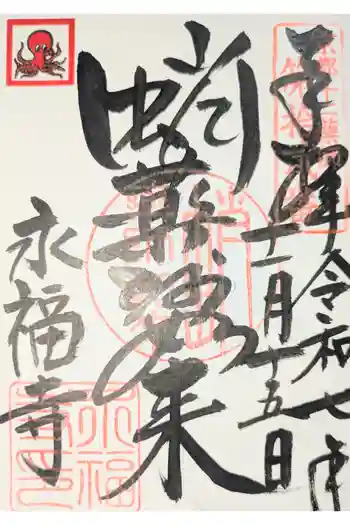 奉拝 令和七年
十一月十五日
蛸薬師如来
永福寺
永福寺印